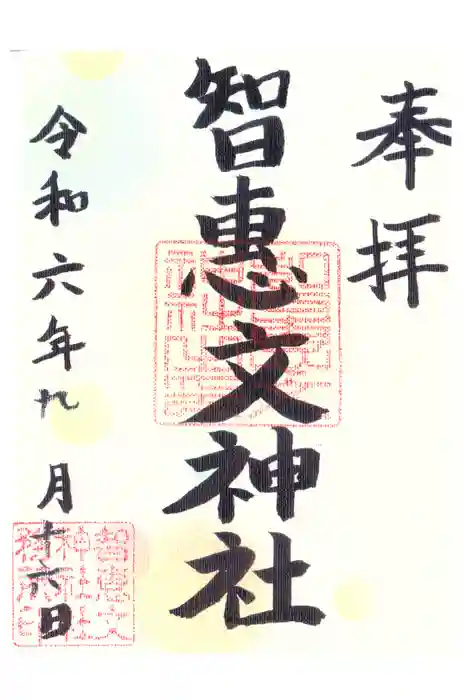 奉拝
智恵文神社
令和六年九月十六日
智恵文
神社社